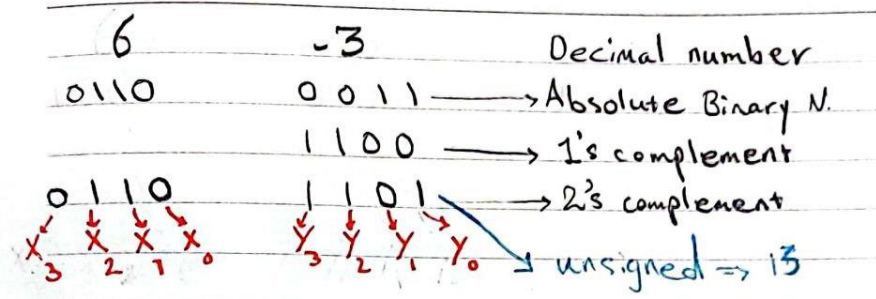 6 -3 Decimal number
0110 0011 → Absolute Binary N.
1100 → 1's complement
0110 1101 → 2's complement
X3 X2 X1 X0 Y3 Y2 Y1 Y0 unsigned => 13